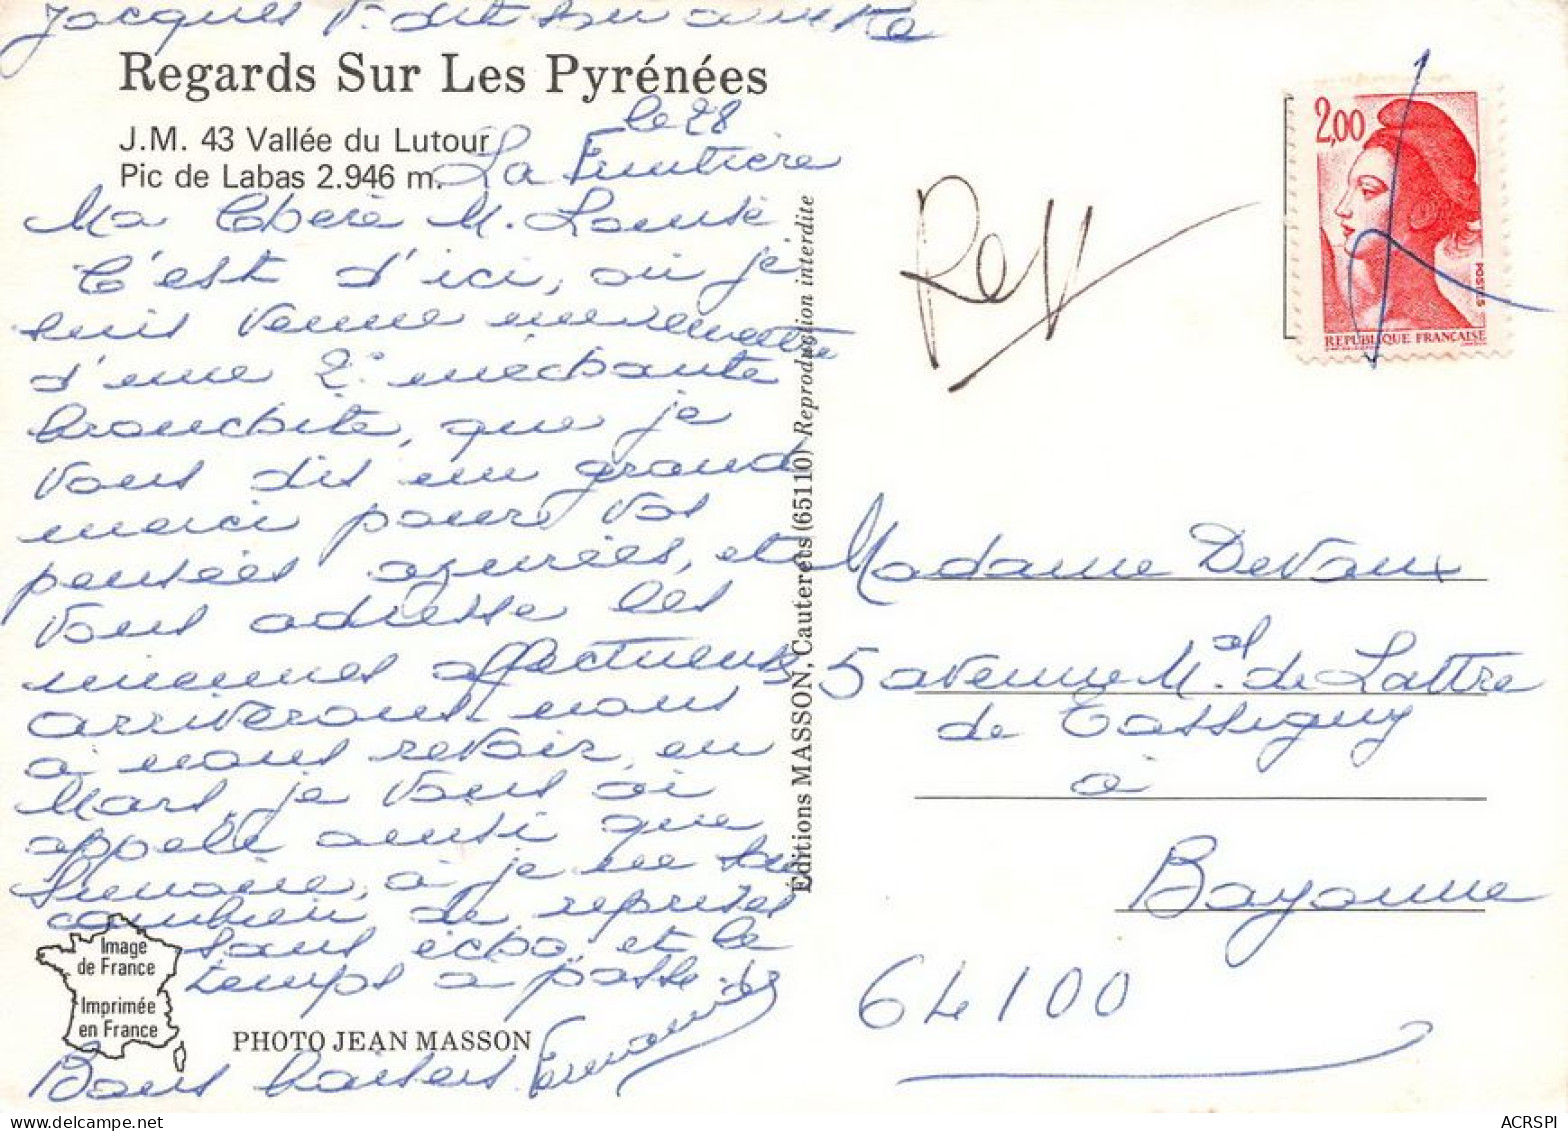 Jacques V. dit son amitié
Regards Sur Les Pyrénées
J.M. 43 Vallée du Lutour
Pic de Labas 2.946 m.
le 28
La
Ma Chère M. Louise
C'est d'ici, où je
suis venue me remettre
d'une 2° méchante
bronchite, que je
vous dis un grand
merci pour vos
pensées azurées, et
vous adresse les
miennes affectueuses
arriverons-nous
à nous revoir, en
Mars, je vous ai
appelé ainsi que
Simone, à je ne sais
combien de reprises
sans écho, et le
temps a passé.
Bons baisers
Image
de France
Imprimée
en France
PHOTO JEAN MASSON
Éditions MASSON, Cauterets (65110) Reproduction interdite
2,00
POSTES
REPUBLIQUE FRANÇAISE
Madame Devaux
5 avenue Mal de Lattre
de Tassigny
à
Bayonne
64100
ACRSPI